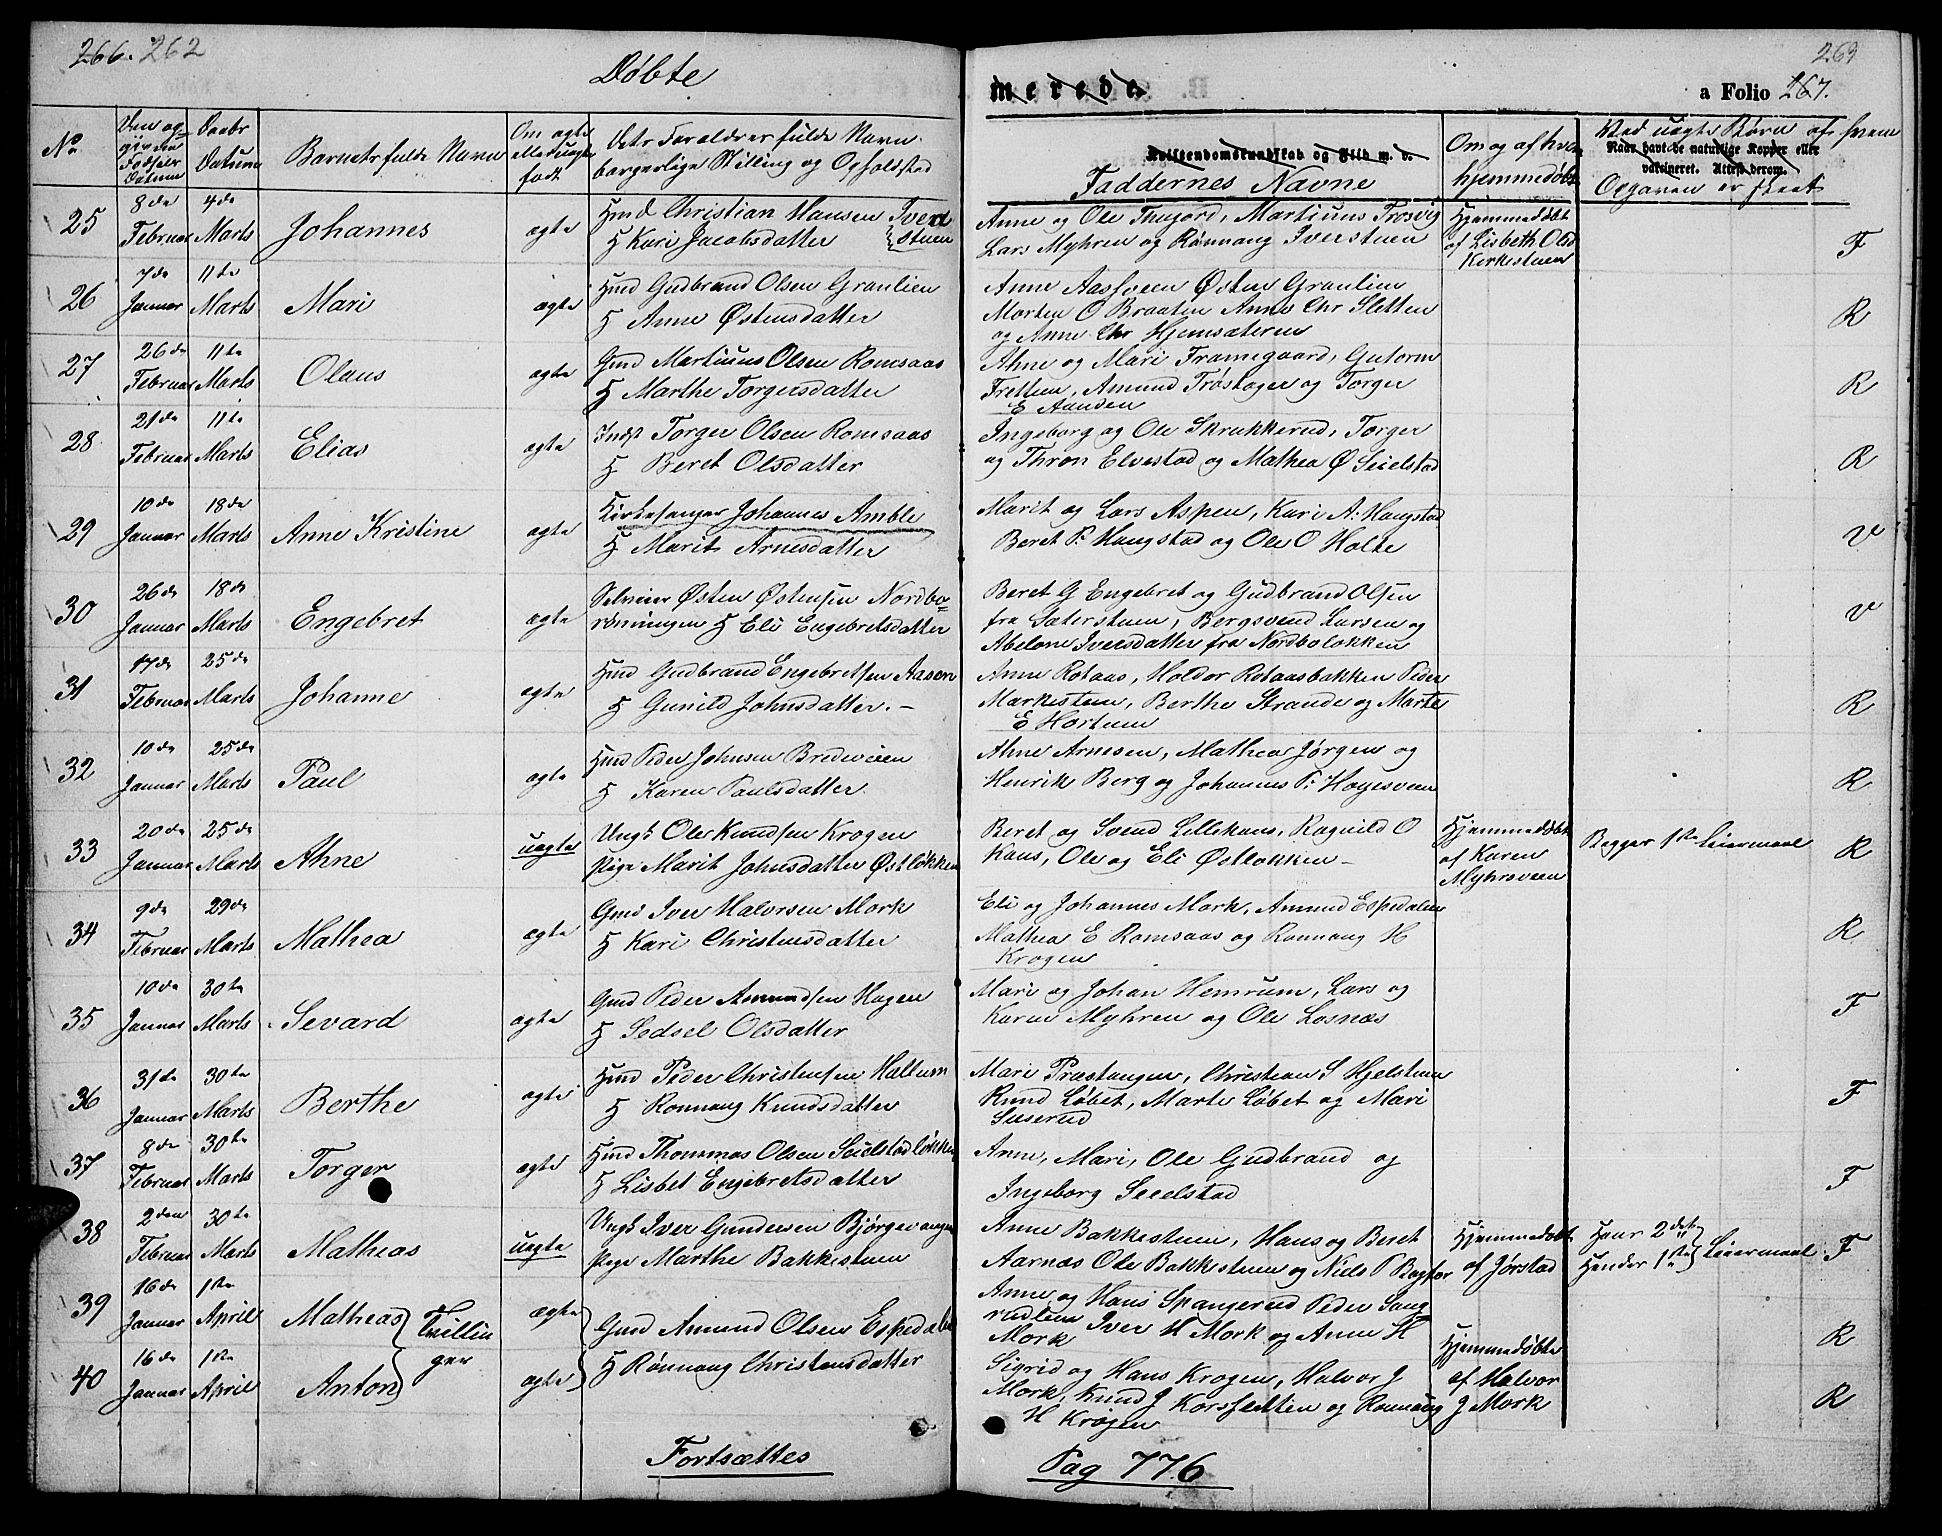 266. 262
Døbte
No
Den op-
givne
Fødsels
Datum
Daabs
Datum
Barnets fulde Navn
Om ægte
eller uægte
født
Dets Foraldres fulde Navn
borgerlige Stilling og Opholdsted
25
8de
Februar
4de
Marts
Johannes
ægte
Hmd Christian Hansen Iver
stuen
H Kari Jacobsdatter
26
7de
Januar
11te
Marts
Mari
ægte
Hmd Gudbrand Olsen Granlien
H Anne Østensdatter
27
26de
Februar
11te
Marts
Olaus
ægte
Gmd Martinus Olsen Romsaas
H Marthe Torgersdatter
28
21de
Februar
11te
Marts
Elias
ægte
Indst Torger Olsen Romsaas
H Beret Olsdatter
29
10de
Januar
18de
Marts
Anne Kristine
ægte
Kirkesanger Johannes Amble
H Marit Arnesdatter
30
26de
Januar
18de
Marts
Engebret
ægte
Selveier Østen Østensen Nordbo-
rdningen H Eli Engebretsdatter
31
17de
Februar
25de
Marts
Johanne
ægte
Hmd Gudbrand Engebretsen Aasen
H Gunild Johnsdatter. -
32
10de
Januar
25de
Marts
Paul
ægte
Hmd Peder Johnsen Bredeveien
H Karen Paulsdatter.
33
20de
Januar
25de
Marts
Ahne
uægte
Ungk Ole Knudsen Krogen
Pige Marit Johnsdatter Østløkken
34
9de
Februar
29de
Marts
Mathea
ægte
Gmd Iver Halvorsen Mork
H Kari Christensdatter
35
10de
Januar
30te
Marts
Sevard
ægte
Gmd Peder Amundsen Hagen
H Sedsel Olsdatter
36
31te
Januar
30te
Marts
Berthe
ægte
Hmd Peder Christensen Haltum
H Ronnaug Knudsdatter
37
8de
Februar
30te
Marts
Torger
ægte
Hmd Thommas Olsen Seielstadløkken
H Lisbet Engebretsdatter
38
2den
Februar
30te
Marts
Mathias
uægte
Ungk Iver Gundersen Bjørgevangen
Pige Marthe Bakkestuen
39
16de
Januar
1ste
April
Mathias
Tvillin
ger
ægte
Gmd Amund Olsen Espedalen
H Rønnaug Christensdatter
40
16de
Januar
1ste
April
Anton
ægte
Fortsættes
263
merede.
a Folio 267.
Kristendomskundskab og Flid m. v.
Faddernes Navne
Om og af hvem
hjemmedøbt
Ved uægte Børn af hvem
Naar havt de naturlige Kopper eller
vakcineret. Attest derom.
Opgaven er skeet
Anne og Ole Thujord, Martinus Trosvig
Lars Myhren og Rønnaug Iverstuen
Hjemmedøbt
af Lisbeth Olsd
Kirkestuen
F
Anne Aassveen Østen Granlien
Morten O Braaten Anne Chr Sletten
og Anne Chr Hjemsæteren
R
Ahne og Mari Framegaard, Gutorm
Frettem, Amund Trøstager og Torger
E Aanden
R
Ingeborg og Ole Skrukkerud, Torger
og Thron Elvestad og Mathea Ø Seielstad
R
Marit og Lars Aspen, Kari A: Haugstad
Beret P: Haugstad og Ole O Holte
V
Beret G Engebret og Gudbrand Olsen
fra Sæterstuen, Bergsvend Larsen og
Abelone Iversdatter fra Nordboløkken
V
Anne Rotaas, Holdor Rotaasbakken Peder
Markestuen, Berthe Strande og Marte
E Hortuen
R
Ahne Arnesen, Mathea Jørgen og
Henrik Berg og Johannes P: Hagesveen
R
Beret og Svend Lillehaus, Ragnild O
Haus, Ole og Eli Østløkken -
Hjemmedøbt
af Karen
Myhrsveen
Begges 1ste Leiermaal
R
Eli og Johannes Mork, Amund Espedalen
Mathea E Romsaas og Rønnaug H
Krogen
R
Mari og Johan Hemrum, Lars og
Karen Myhren og Ole Losnæs
F
Mari Præstangen, Christian S Hjelstuen
Knud Løbet, Marte Løbet og Mari
Suserud
F
Anne, Mari, Ole Gudbrand og
Ingeborg Seielstad
F
Anne Bakkestuen, Hans og Beret
Aarnæs Ole Bakkestuen og Niels P Bagtor
Hjemmedøbt
af Jørstad
Hans 2det
Hendes 1ste
Leiermaal
F
Anne og Hans Spangerud Peder Saug
rudlien Iver H Mork og Anne H
Mork
R
Sigrid og Hans Krogen, Halvor J
Mork, Knud J Korssletten og Rønnaug
H Krogen
Hjemmedøbte
af Halvor
J Mork
R
Pag 776